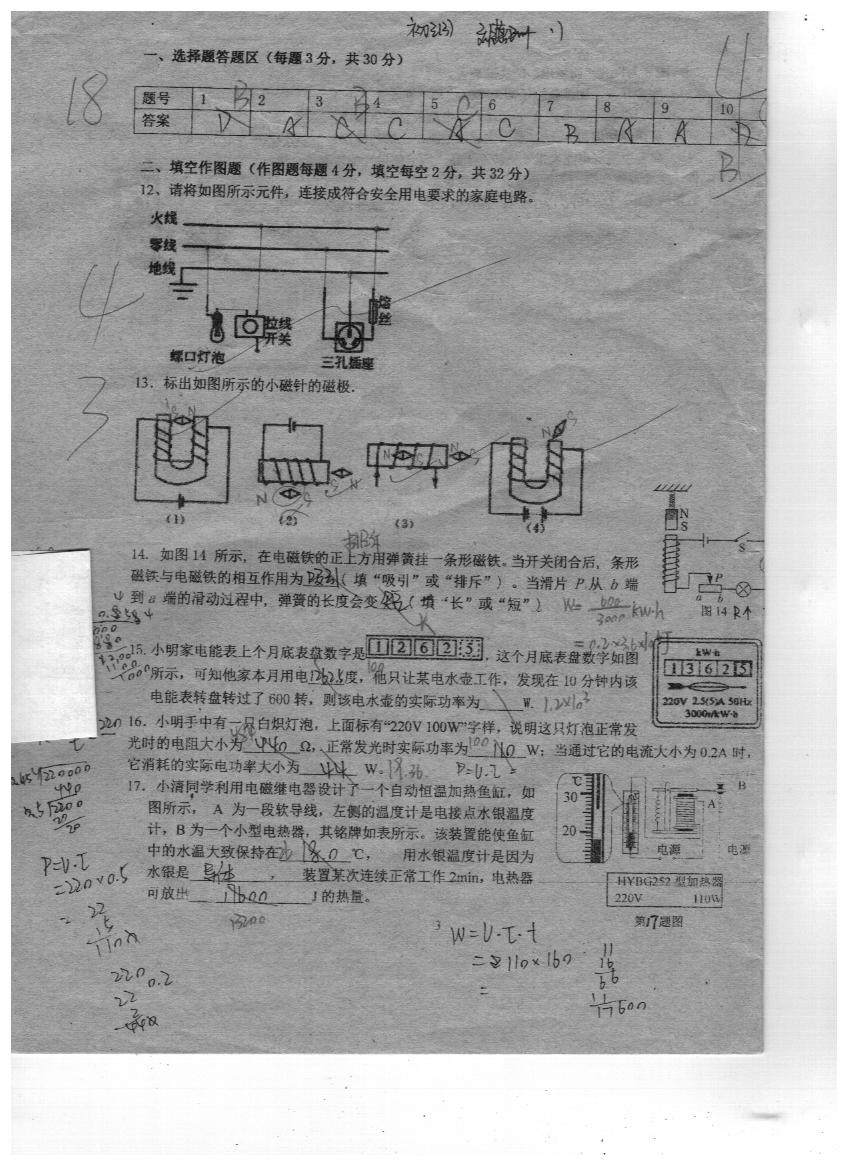 初三(3)
一、选择题答题区（每题3分，共30分）
18
题号 1 2 3 4 5 6 7 8 9 10
答案 D A C C A C B A A D
B B C B
二、填空作图题（作图题每题4分，填空每空2分，共32分）
12、请将如图所示元件，连接成符合安全用电要求的家庭电路。
火线
零线
地线
4
拉线开关
熔丝
螺口灯泡
三孔插座
3
13．标出如图所示的小磁针的磁极．
S N
N S N
N S N S
N S
(1) (2) (3) (4)
N
S
S
P
a b
图14 R↑
14. 如图14 所示，在电磁铁的正上方用弹簧挂一条形磁铁。当开关闭合后，条形
磁铁与电磁铁的相互作用为吸引（填“吸引”或“排斥”）。当滑片 P 从 b 端
到 a 端的滑动过程中，弹簧的长度会变短（填“长”或“短”）
W= 600/3000 kW·h
长
15. 小明家电能表上个月底表盘数字是 1 2 6 2 5，这个月底表盘数字如图
所示，可知他家本月用电 度，他只让某电水壶工作，发现在 10 分钟内该
100
电能表转盘转过了 600 转，则该电水壶的实际功率为 W. 1.2×10³
kW·h
1 3 6 2 5
220V 2.5(5)A 50Hz
3000r/kW·h
16．小明手中有一只白炽灯泡，上面标有“220V 100W”字样，说明这只灯泡正常发
光时的电阻大小为 440 Ω，正常发光时实际功率为 110 W；当通过它的电流大小为 0.2A 时，
484
100
它消耗的实际电功率大小为 44 W。19.36 P=U·I =
17．小清同学利用电磁继电器设计了一个自动恒温加热鱼缸，如
图所示， A 为一段软导线，左侧的温度计是电接点水银温度
计，B 为一个小型电热器，其铭牌如表所示。该装置能使鱼缸
中的水温大致保持在 18.0 ℃， 用水银温度计是因为
水银是 导体 ， 装置某次连续正常工作 2min，电热器
可放出 17600 J 的热量。
13200
℃
30
20
A
B
电源
电源
HYBG252 型加热器
220V 110W
第17题图
P=U·I
=220×0.5
=
22
15
110
220 0.2
22
W=U·I·t
=110×160
=
11
16
66
11
17600